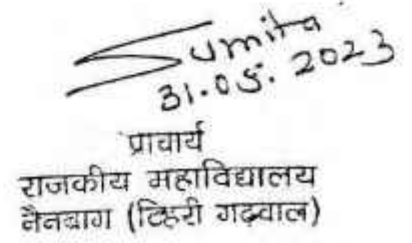 Sumita
31.05.2023
प्राचार्य
राजकीय महाविद्यालय
नैनबाग (टिहरी गढ़वाल)